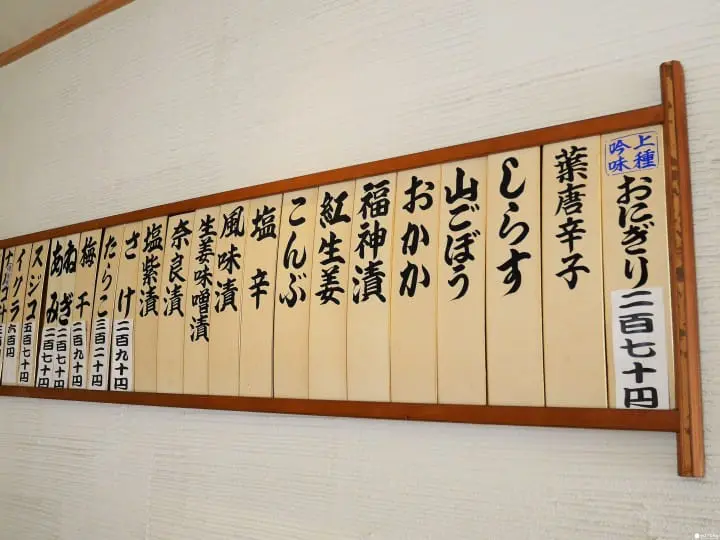 上種
吟味
おにぎり 二百七十円
葉唐辛子
しらす
山ごぼう
おかか
福神漬
紅生姜
こんぶ
塩辛
風味漬
生姜味噌漬
奈良漬
塩紫漬
さけ 二百九十円
たらこ 三百二十円
梅干 二百九十円
ねぎ 二百七十円
あみ 二百七十円
スジコ 五百七十円
イクラ 六百円